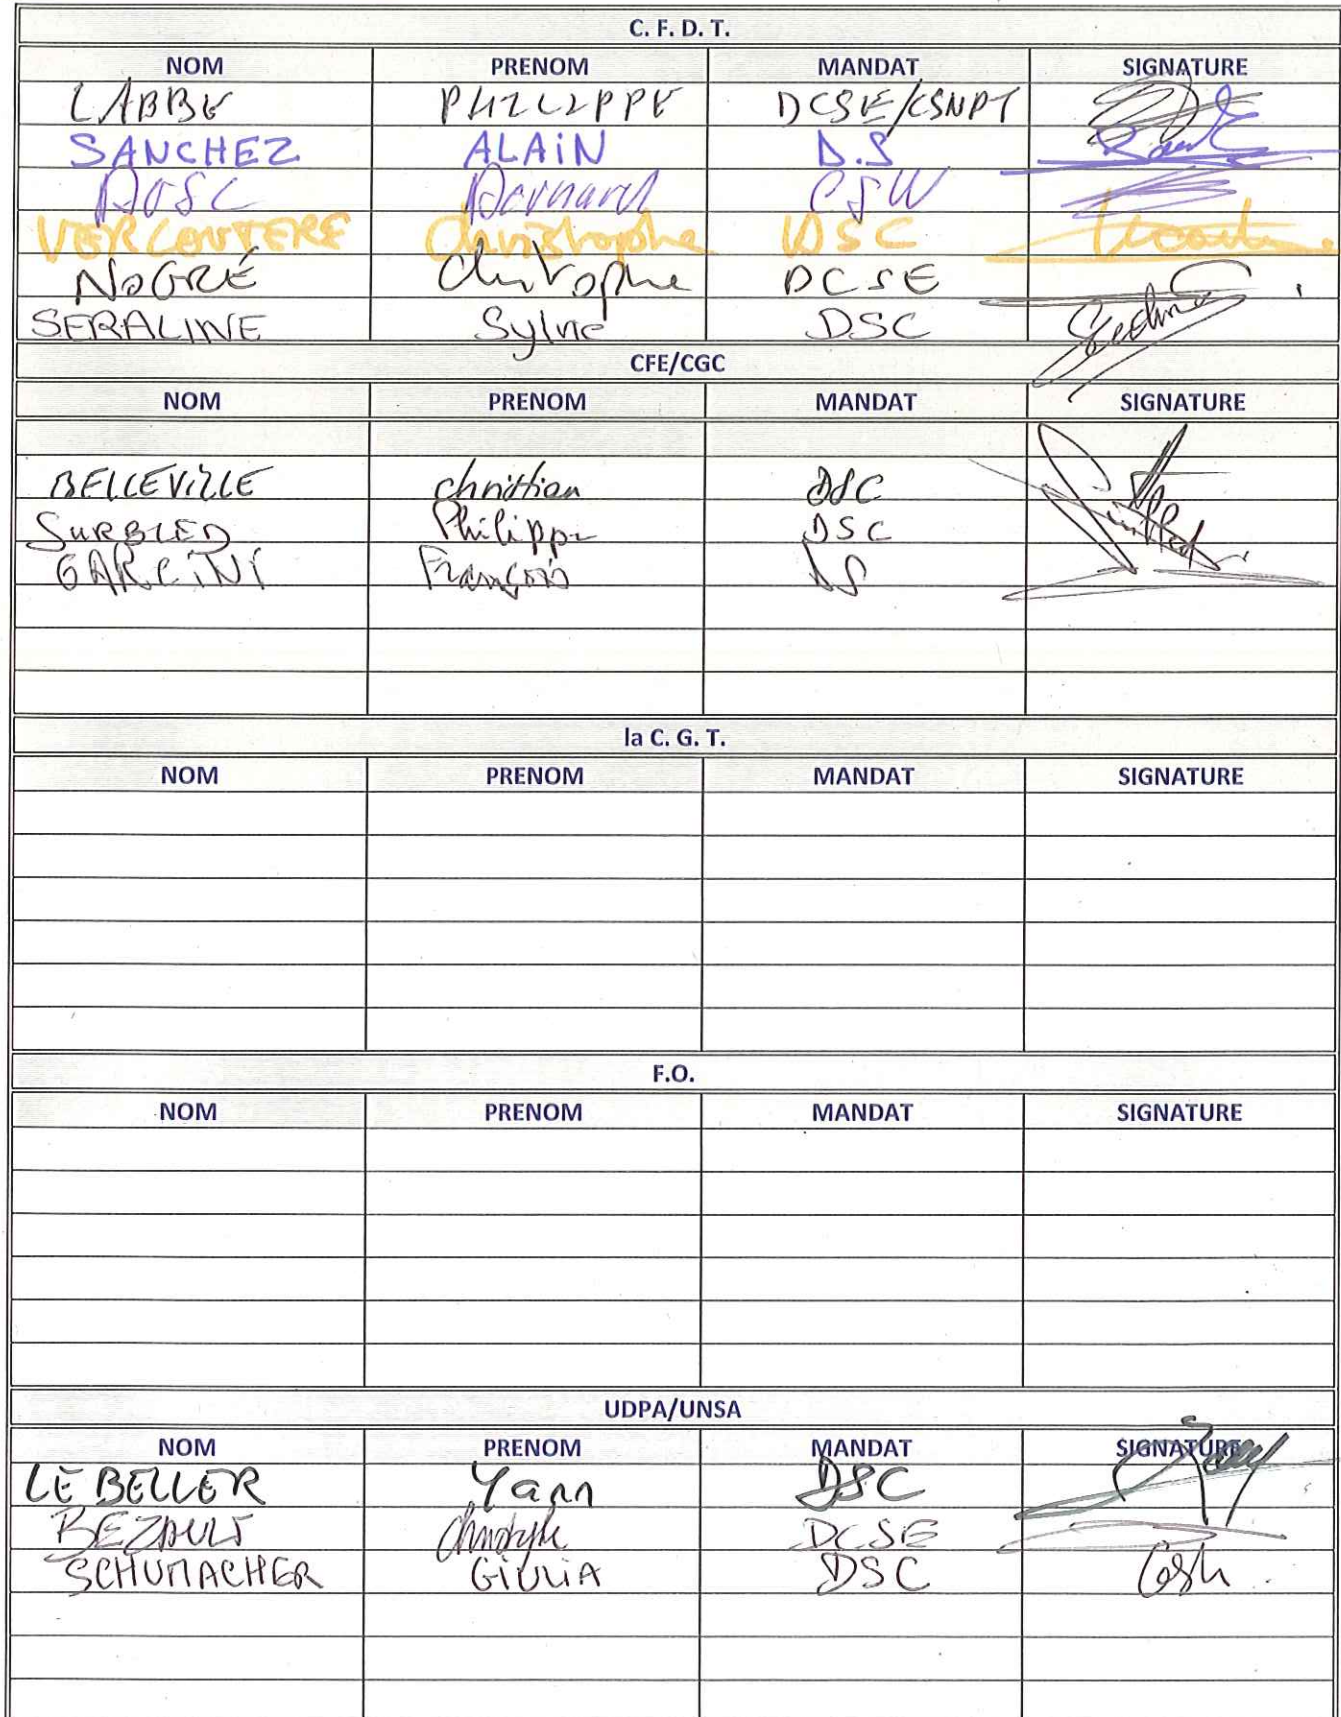 C. F. D. T.
NOM PRENOM MANDAT SIGNATURE
LABBE PHILIPPE DCSE/CSNPT
SANCHEZ ALAiN D.S
VERCOUTERE Christophe DSC
NOGRÉ Christophe DCSE
SERALINE Sylvie DSC
CFE/CGC
NOM PRENOM MANDAT SIGNATURE
BELLEVILLE christian DSC
SURBLED Philippe DSC
GARCINI François DS
la C. G. T.
NOM PRENOM MANDAT SIGNATURE
F.O.
NOM PRENOM MANDAT SIGNATURE
UDPA/UNSA
NOM PRENOM MANDAT SIGNATURE
LE BELLER Yann DSC
BEZAULT Christophe DCSE
SCHUMACHER GiULiA DSC